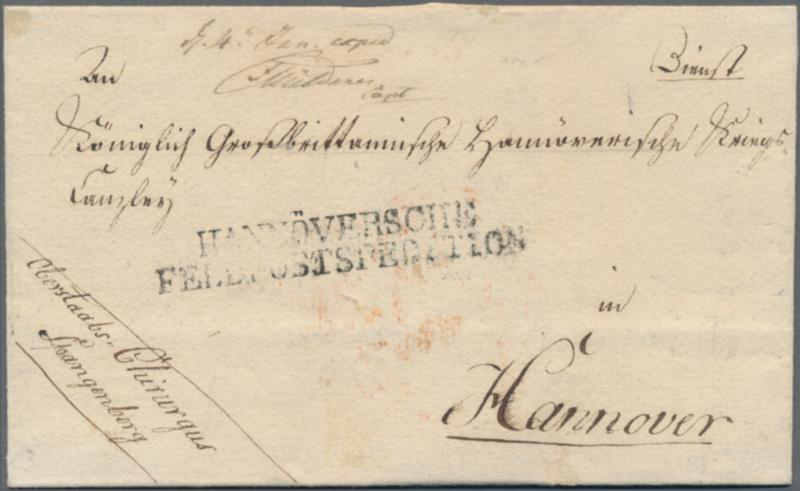 Dienst
An
Königlich Großbrittannische Hannöverische Kriegs-
Canzley
HANNÖVERSCHE
FELDPOSTSPEDITION
in
Hannover
Oberstaabs-Chirurgus
Spangenberg